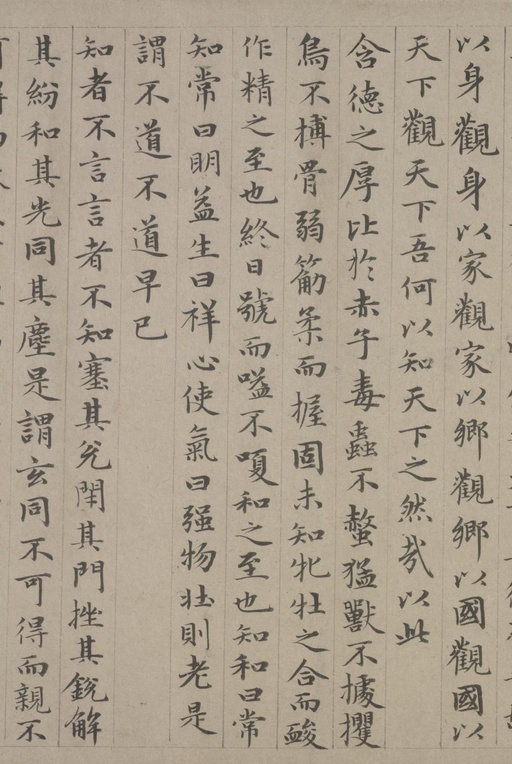 以身觀身以家觀家以鄉觀鄉以國觀國以
天下觀天下吾何以知天下之然哉以此
含德之厚比於赤子毒蟲不螫猛獸不據攫
鳥不搏骨弱筋柔而握固未知牝牡之合而䘒
作精之至也終日號而嗌不嗄和之至也知和曰常
知常曰明益生曰祥心使氣曰强物壯則老是
謂不道不道早已
知者不言言者不知塞其兌閉其門挫其銳解
其紛和其光同其塵是謂玄同不可得而親不